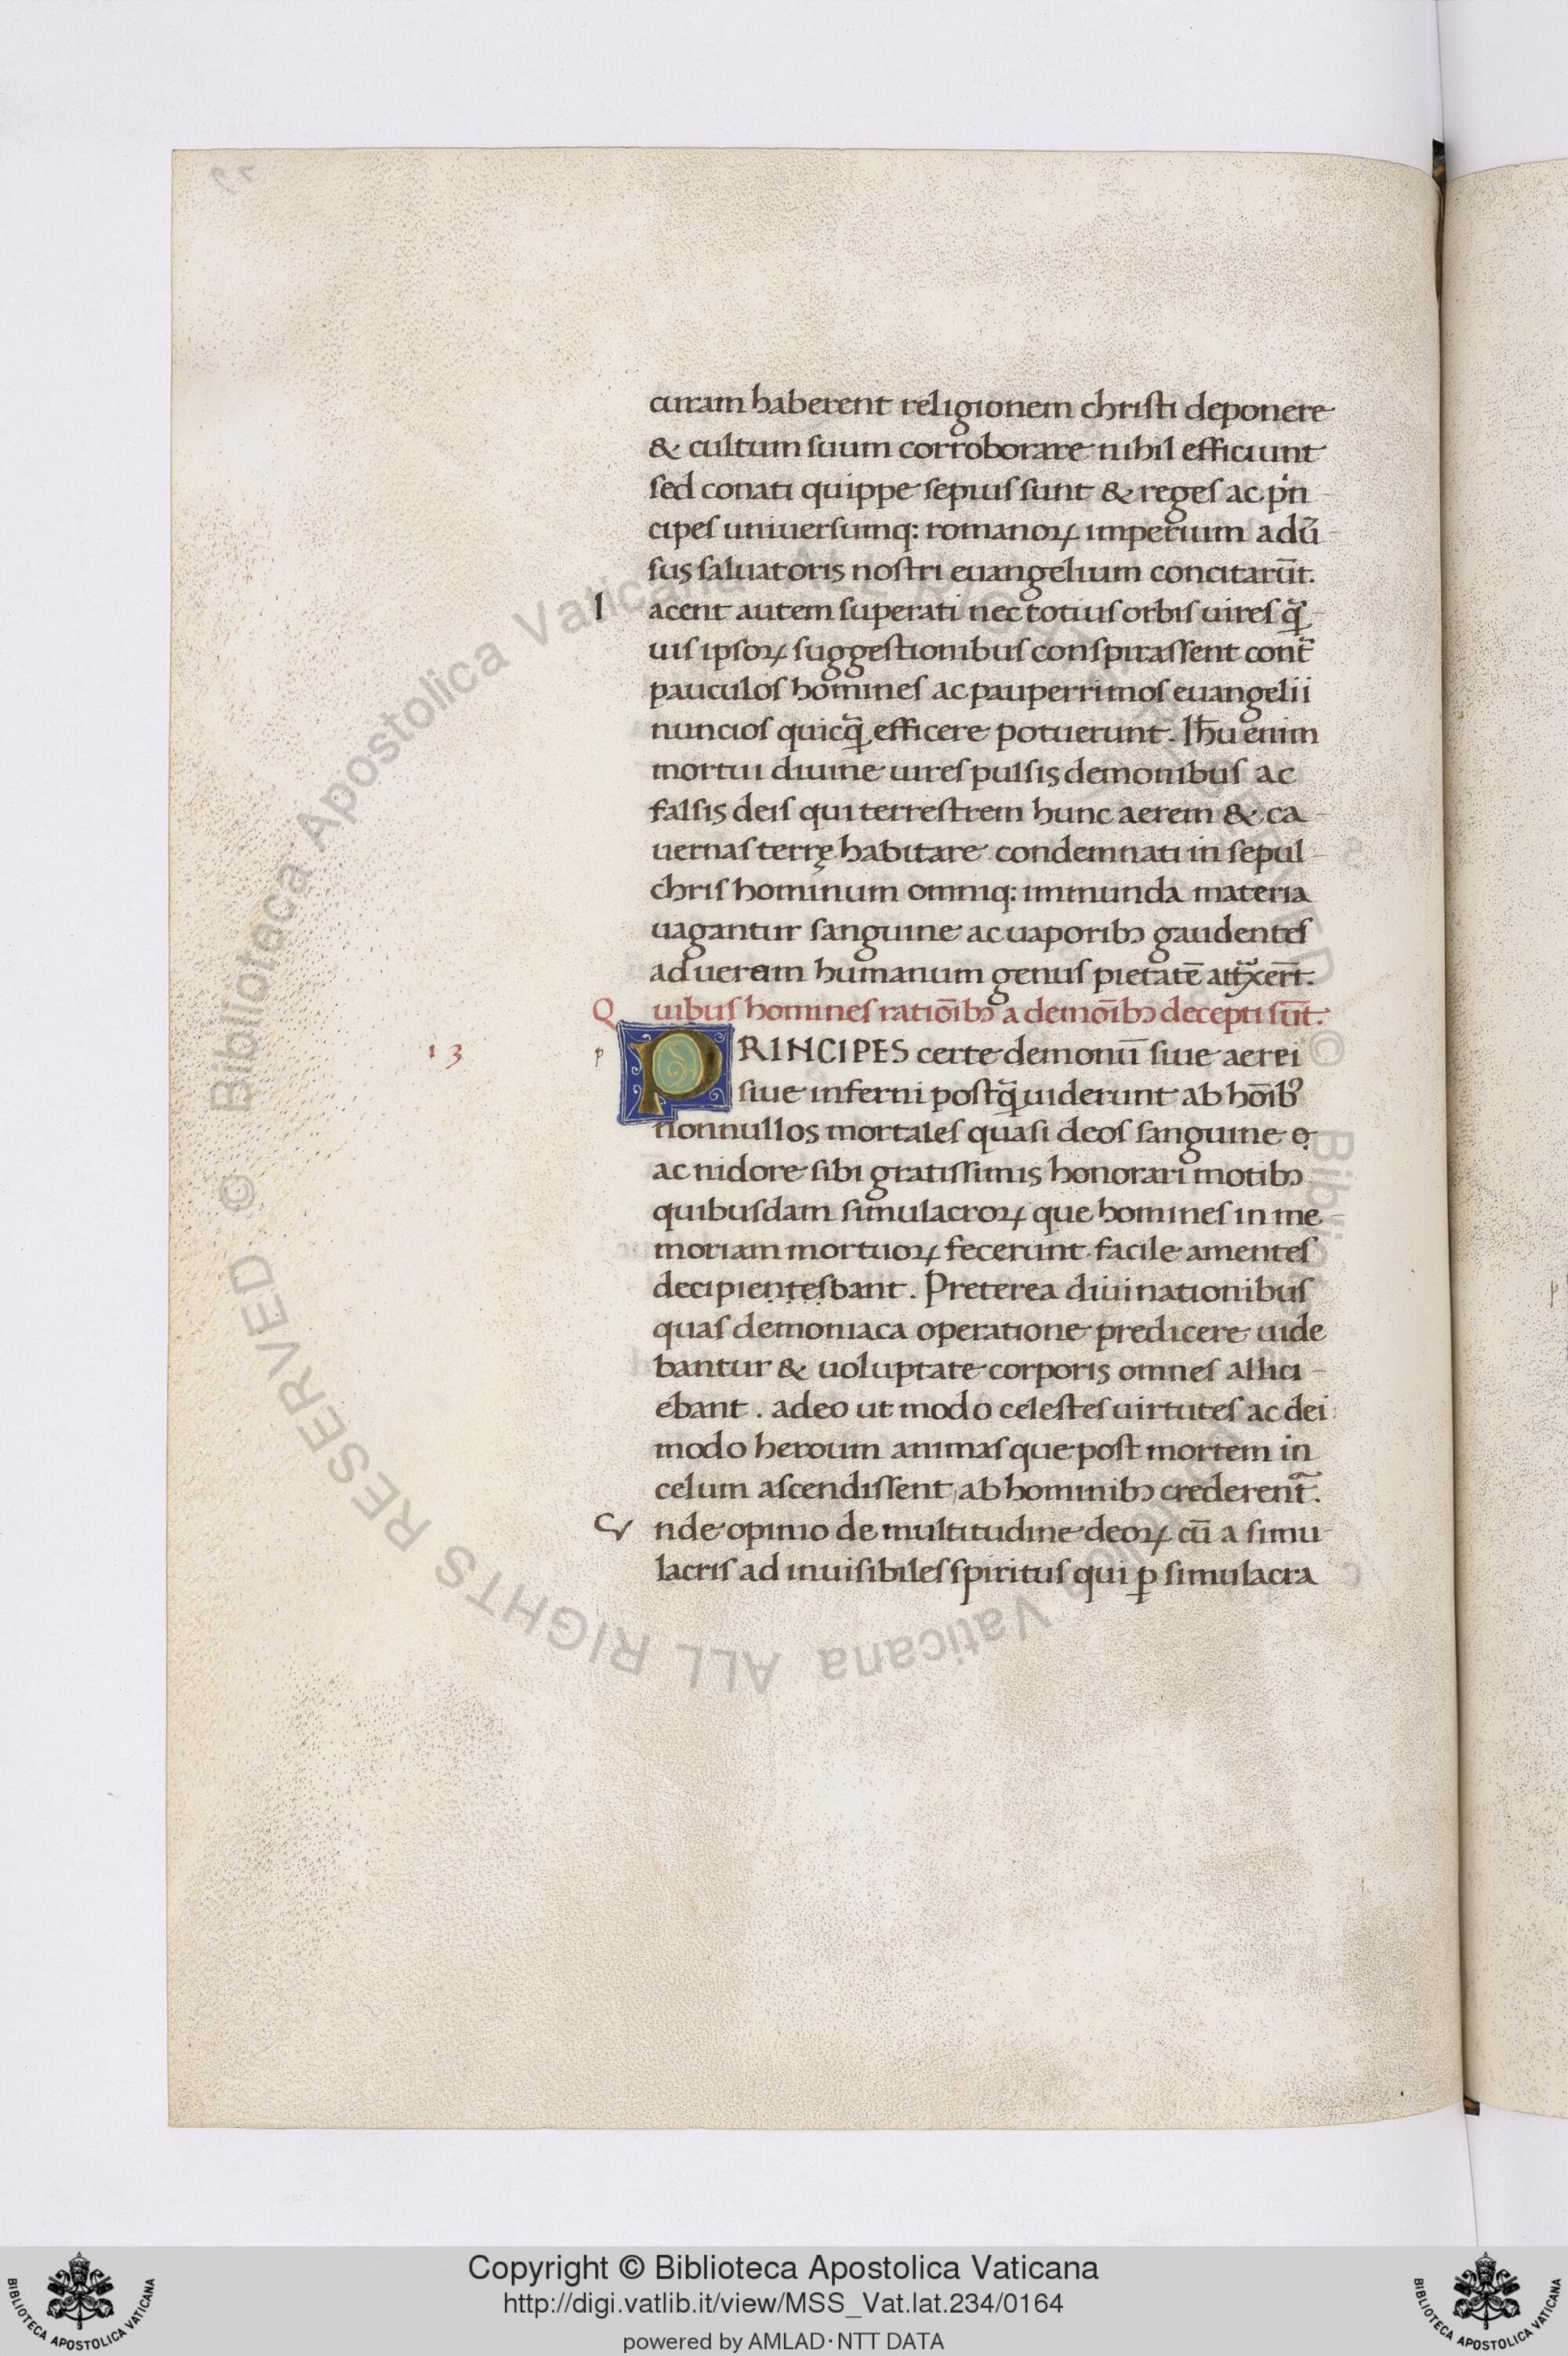 curam haberent religionem christi deponere
& cultum suum corroborare nihil efficiunt
sed conati quippe sepius sunt & reges ac pͥn
cipes universumq: romanoꝝ imperium adu᷒
sus salvatoris nostri euangelium concitarūt.
I acent autem superati nec totius orbis uires qͣ̃
uis ipsoꝝ suggestionibus conspirassent contᷓ
pauculos homines ac pauperrimos euangelii
nuncios quicq̃ efficere potuerunt. Ihu̅ enim
mortui diuine uires pulsis demonibus ac
falsis deis qui terrestrem hunc aerem & ca
uernas terrę habitare condemnati in sepul
chris hominum omniq: immunda materia
uagantur sanguine ac uaporibꝫ gaudentes
ad ueram humanum genus pietatē attᷓxer̅t.
Q uibus homines ratiōibꝫ a demōibꝫ decepti sūt.
13
p PRINCIPES certe demonū siue aerei
siue inferni postq̃ uiderunt ab hōibꝰ
nonnullos mortales quasi deos sanguine
ac nidore sibi gratissimis honorari motibꝫ
quibusdam simulacroꝝ que homines in me
moriam mortuoꝝ fecerunt facile amentes
decipiẹṇṭẹṣbant. Preterea diuinationibus
quas demoniaca operatione predicere uide
bantur & uoluptate corporis omnes allici
ebant. adeo ut modo celestes uirtutes ac dei
modo heroum animas que post mortem in
celum ascendissent ab hominibꝫ crederentᷓ.
V nde opinio de multitudine deoꝝ cū a simu
lacris ad inuisibiles spiritus qui ꝑ simulacra
© Biblioteca Apostolica Vaticana ALL RIGHTS RESERVED © Biblioteca Apostolica Vaticana ALL RIGHTS RESERVED
Copyright © Biblioteca Apostolica Vaticana
http://digi.vatlib.it/view/MSS_Vat.lat.234/0164
powered by AMLAD·NTT DATA
BIBLIOTECA APOSTOLICA VATICANA
BIBLIOTECA APOSTOLICA VATICANA